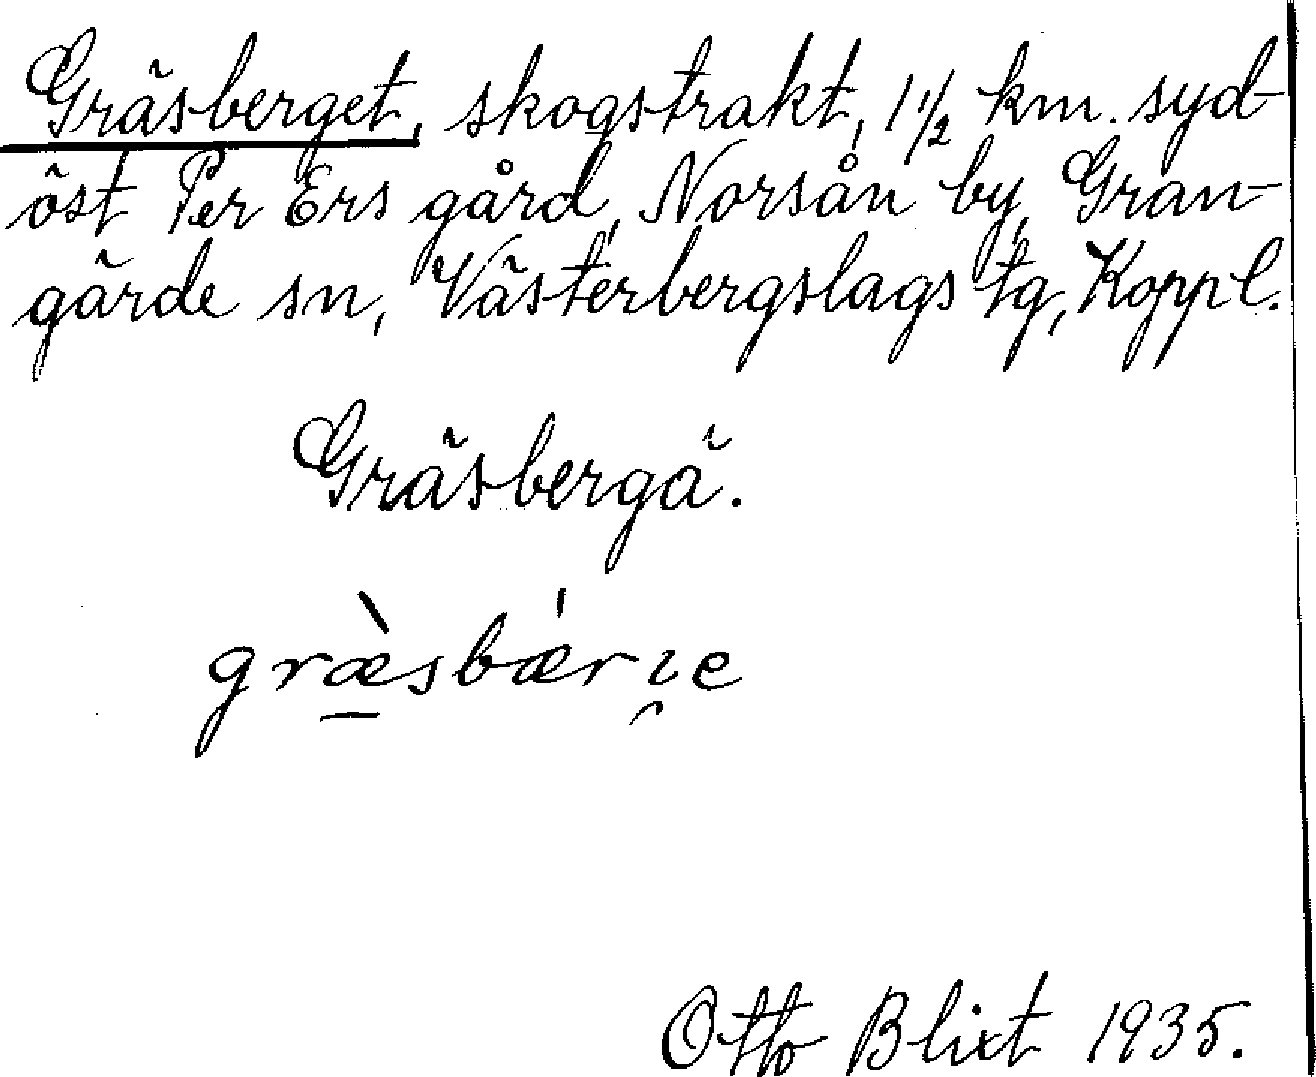 Gräsberget, skogstrakt, 1 1/2 km. syd-
öst Per Ers gård, Norsån by, Gran-
gärde sn, Västerbergslags tg, Koppl.
Gräsbergä.
græ̀sbǽrı̨e
Otto Blixt 1935.